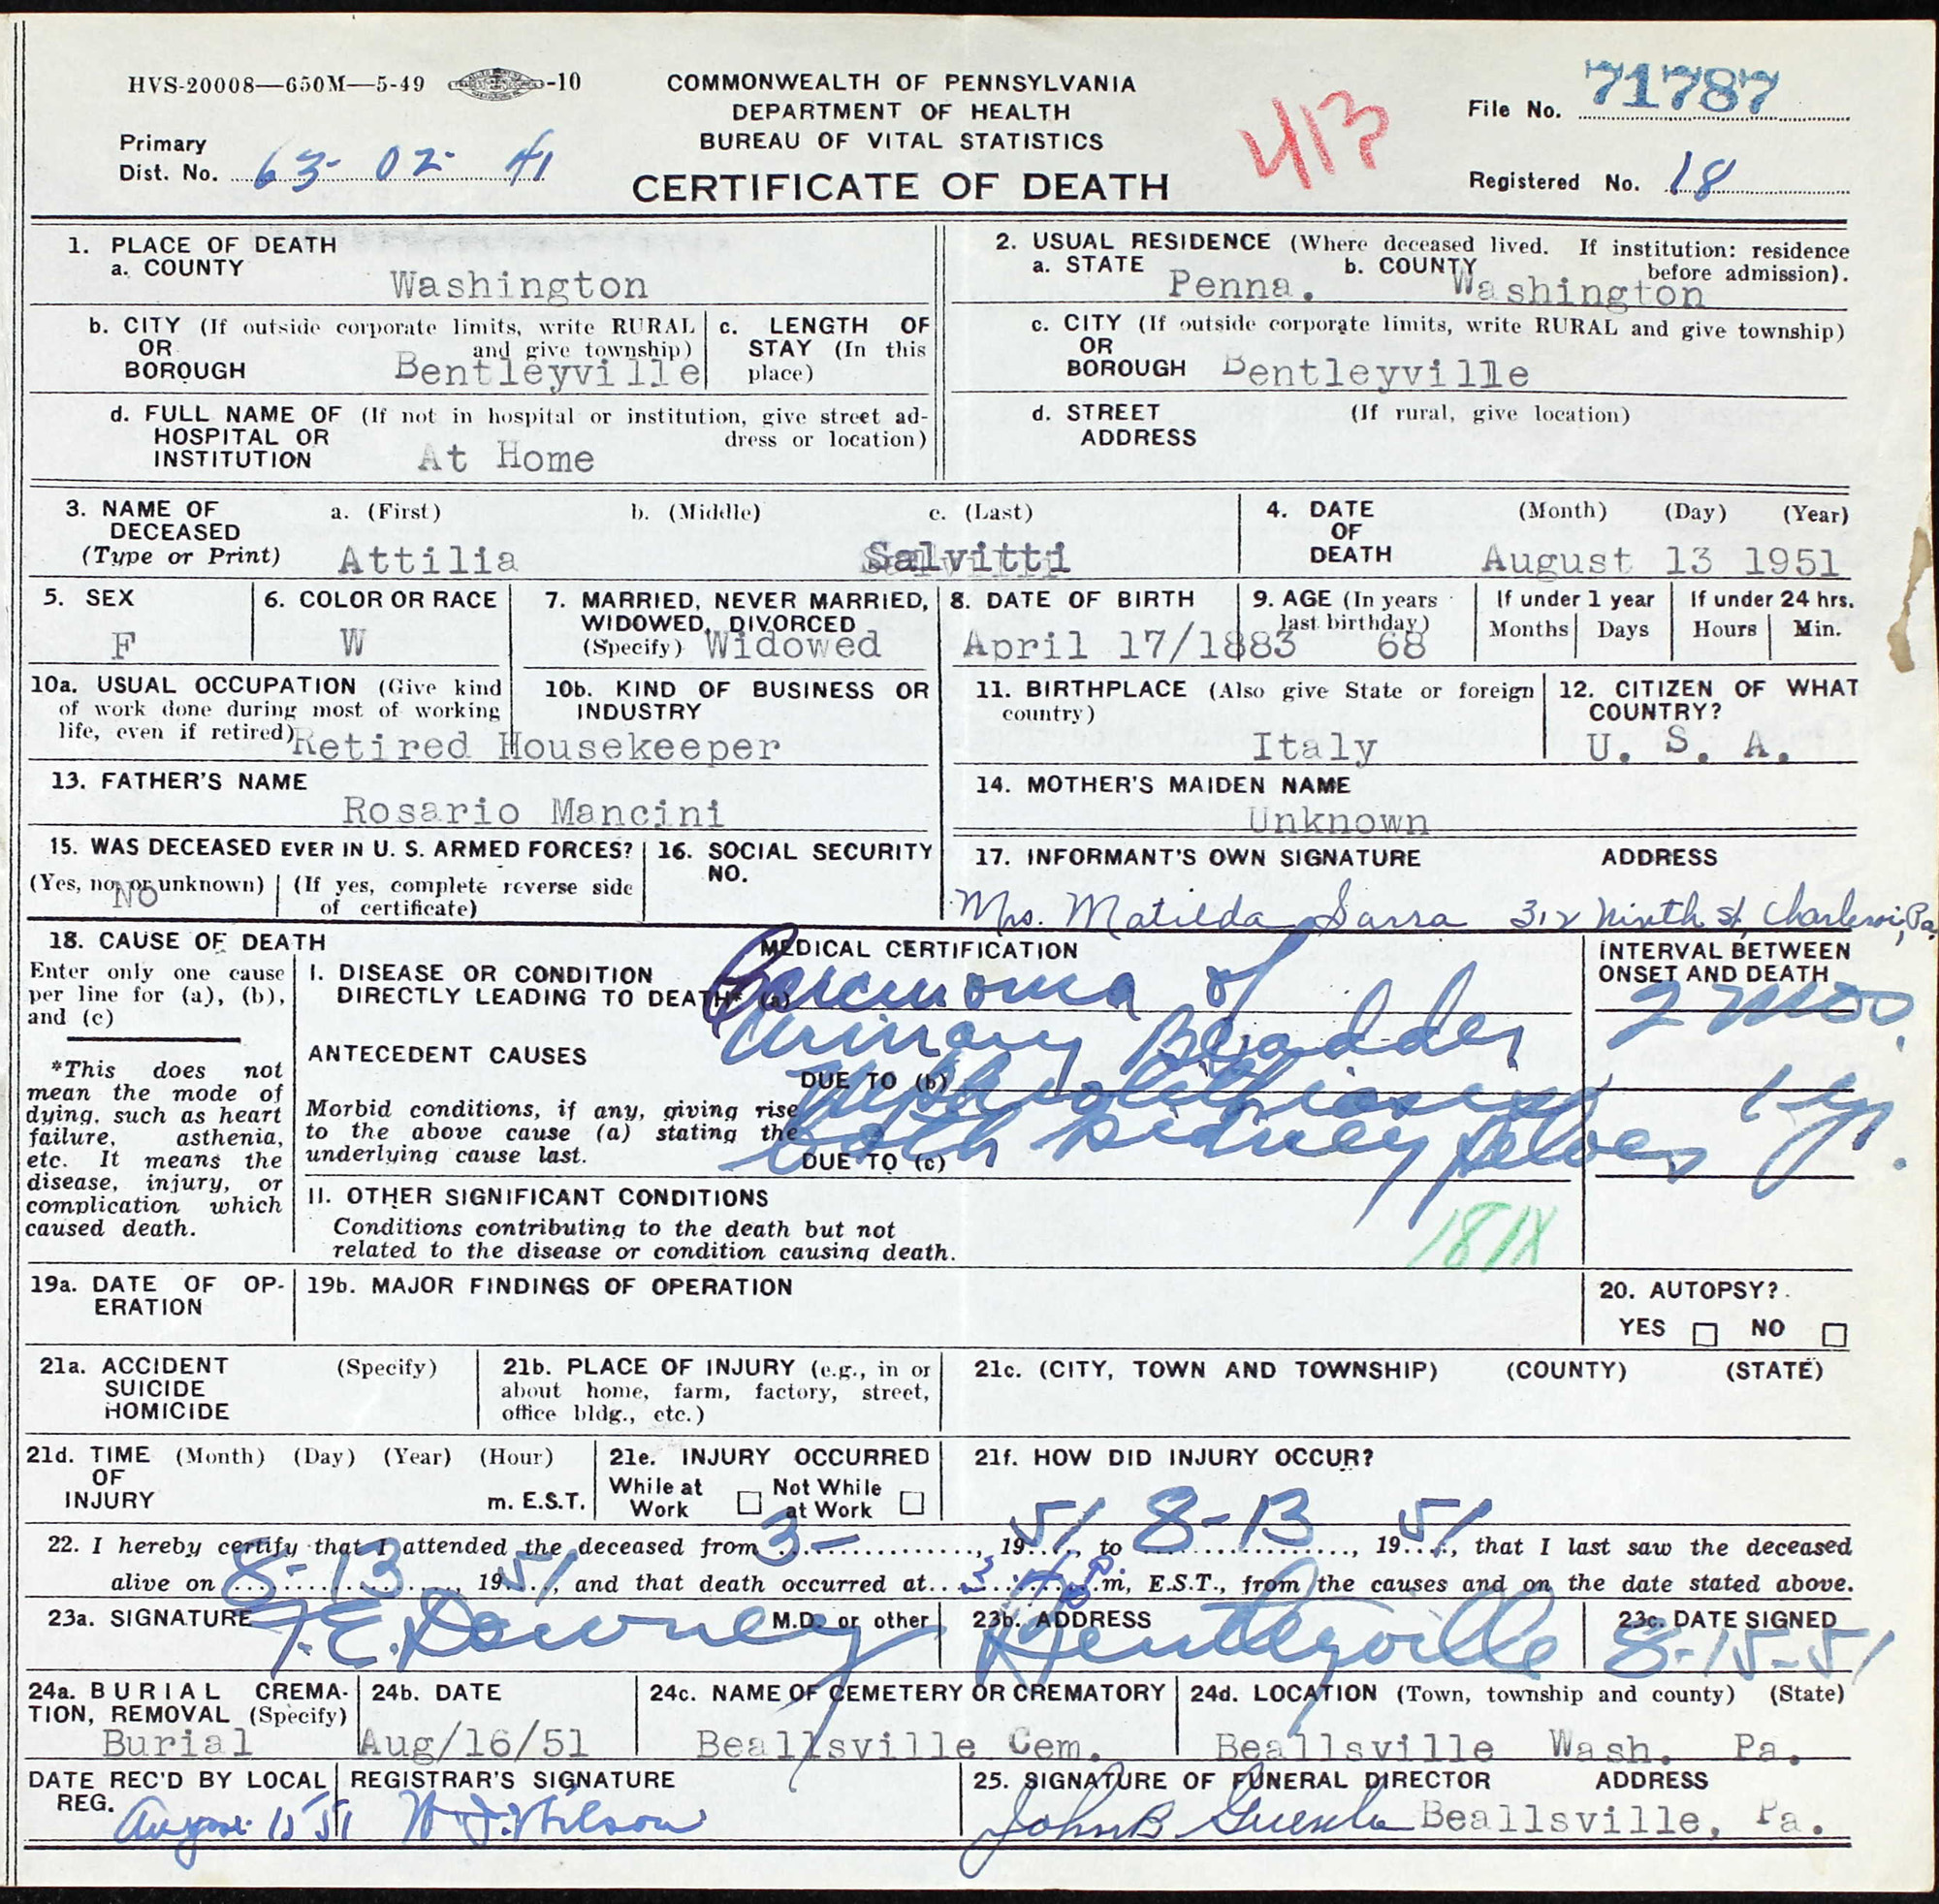 HVS-20008—650M—5-49 -10
COMMONWEALTH OF PENNSYLVANIA
DEPARTMENT OF HEALTH
BUREAU OF VITAL STATISTICS
CERTIFICATE OF DEATH
413
File No. 71787
Primary
Dist. No. 63-02-41
Registered No. 18
1. PLACE OF DEATH
a. COUNTY
Washington
b. CITY (If outside corporate limits, write RURAL
OR and give township)
BOROUGH Bentleyville
c. LENGTH OF
STAY (In this
place)
d. FULL NAME OF (If not in hospital or institution, give street ad-
HOSPITAL OR dress or location)
INSTITUTION At Home
2. USUAL RESIDENCE (Where deceased lived. If institution: residence
a. STATE b. COUNTY before admission).
Penna. Washington
c. CITY (If outside corporate limits, write RURAL and give township)
OR
BOROUGH Bentleyville
d. STREET (If rural, give location)
ADDRESS
3. NAME OF a. (First) b. (Middle) c. (Last)
DECEASED
(Type or Print) Attilia Salvitti
4. DATE (Month) (Day) (Year)
OF
DEATH August 13 1951
5. SEX
F
6. COLOR OR RACE
W
7. MARRIED, NEVER MARRIED,
WIDOWED, DIVORCED
(Specify) Widowed
8. DATE OF BIRTH
April 17/1883
9. AGE (In years
last birthday)
68
If under 1 year
Months Days
If under 24 hrs.
Hours Min.
10a. USUAL OCCUPATION (Give kind
of work done during most of working
life, even if retired) Retired Housekeeper
10b. KIND OF BUSINESS OR
INDUSTRY
11. BIRTHPLACE (Also give State or foreign
country)
Italy
12. CITIZEN OF WHAT
COUNTRY?
U. S. A.
13. FATHER'S NAME
Rosario Mancini
14. MOTHER'S MAIDEN NAME
Unknown
15. WAS DECEASED EVER IN U. S. ARMED FORCES?
(Yes, no, or unknown) (If yes, complete reverse side
of certificate)
NO
16. SOCIAL SECURITY
NO.
17. INFORMANT'S OWN SIGNATURE ADDRESS
Mrs. Matilda Sarra 312 Ninth st, Charleroi, Pa.
18. CAUSE OF DEATH
Enter only one cause
per line for (a), (b),
and (c)
*This does not
mean the mode of
dying, such as heart
failure, asthenia,
etc. It means the
disease, injury, or
complication which
caused death.
MEDICAL CERTIFICATION
I. DISEASE OR CONDITION
DIRECTLY LEADING TO DEATH* (a) Carcinoma of
Urinary Bladder
ANTECEDENT CAUSES
DUE TO (b) Nephrolithiasis
Morbid conditions, if any, giving rise
to the above cause (a) stating the
underlying cause last.
both kidney pelves
DUE TO (c)
II. OTHER SIGNIFICANT CONDITIONS
Conditions contributing to the death but not
related to the disease or condition causing death.
181X
INTERVAL BETWEEN
ONSET AND DEATH
2 mos.
1 yr.
19a. DATE OF OP-
ERATION
19b. MAJOR FINDINGS OF OPERATION
20. AUTOPSY?
YES NO
21a. ACCIDENT (Specify)
SUICIDE
HOMICIDE
21b. PLACE OF INJURY (e.g., in or
about home, farm, factory, street,
office bldg., etc.)
21c. (CITY, TOWN AND TOWNSHIP) (COUNTY) (STATE)
21d. TIME (Month) (Day) (Year) (Hour)
OF
INJURY m. E.S.T.
21e. INJURY OCCURRED
While at Not While
Work at Work
21f. HOW DID INJURY OCCUR?
22. I hereby certify that I attended the deceased from 3-, 1951, to 8-13, 1951, that I last saw the deceased
alive on 8-13, 1951, and that death occurred at P.m, E.S.T., from the causes and on the date stated above.
23a. SIGNATURE M.D. or other
F.E. Downey
23b. ADDRESS
Bentleyville
23c. DATE SIGNED
8-15-51
24a. BURIAL CREMA-
TION, REMOVAL (Specify)
Burial
24b. DATE
Aug/16/51
24c. NAME OF CEMETERY OR CREMATORY
Beallsville Cem.
24d. LOCATION (Town, township and county) (State)
Beallsville Wash. Pa.
DATE REC'D BY LOCAL
REG. 15 51
REGISTRAR'S SIGNATURE
Wilson
25. SIGNATURE OF FUNERAL DIRECTOR ADDRESS
John B Beallsville, Pa.